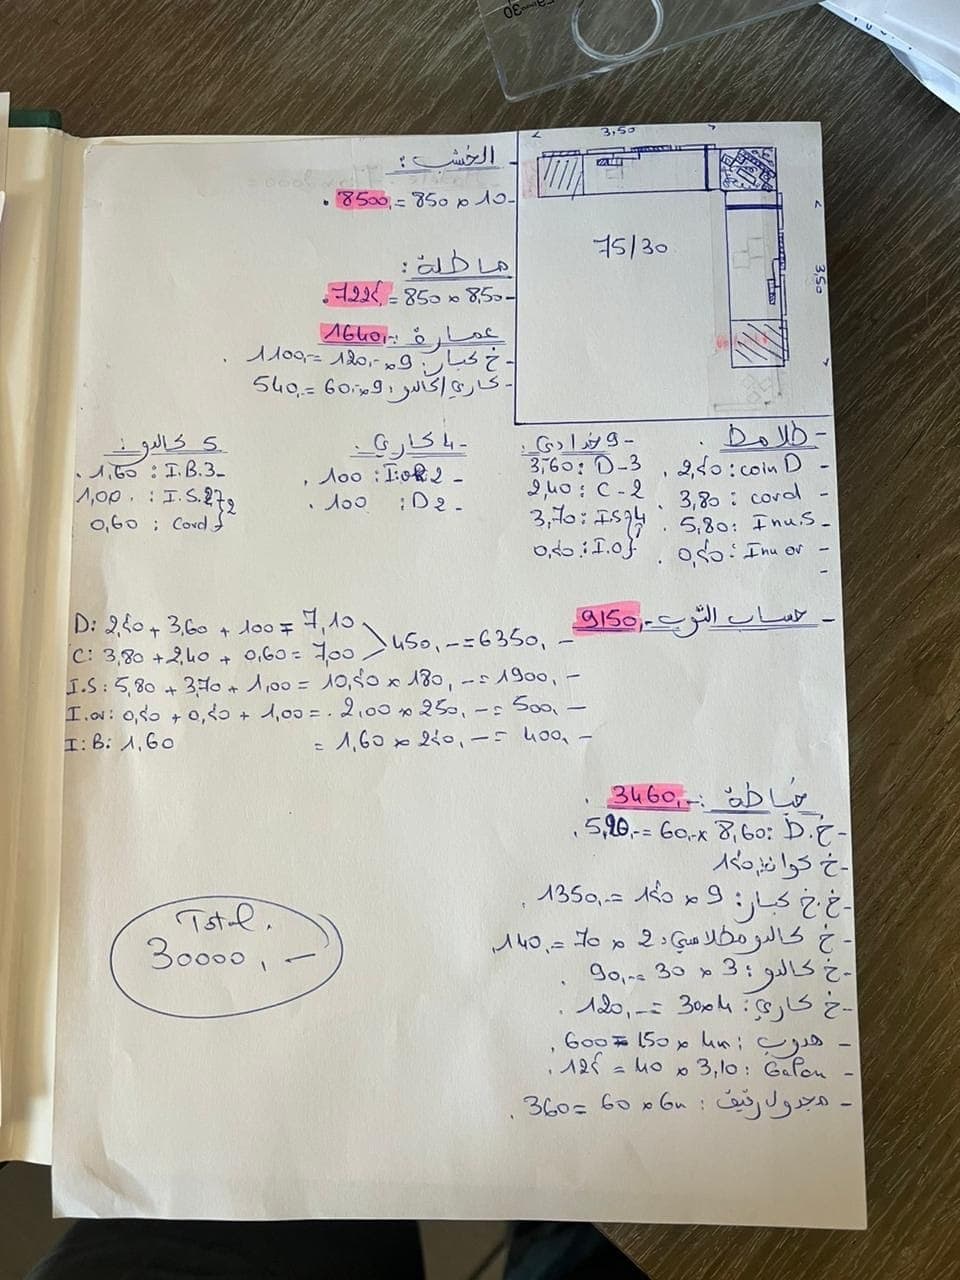 3,50
3,50
75/30
- الخشب :
8500,- = 850 x 10 -
ماطلة :
7225 = 850 x 8,50 -
عمارة : 1640,-
- خ كبار : 9 x 120,- = 1100,-
- كاري/كالدو : 9 x 60,- = 540,-
- طلامط .
- coin D : 2,50
- cord : 3,80
- Inu.S : 5,80
- Inu or : 0,50
-
- 9 خدادي .
3 - D : 3,60
2 - C : 2,40
4 IS : 3,70
I.O : 0,50
4 كاري .
- 2 I.OR : 100
- 2 D : 100
5 كالدو :
- 3 I.B : 1,60
2 I.S : 1,00
Cord : 0,60
- حساب الثوب - 9150,-
D: 2,50 + 3,60 + 100 = 7,10
C: 3,80 + 2,40 + 0,60 = 7,00
450,- = 6350,-
I.S: 5,80 + 3,70 + 1,00 = 10,50 x 180,- = 1900,-
I.or: 0,50 + 0,50 + 1,00 = 2,00 x 250,- = 500,-
I.B: 1,60 = 1,60 x 250,- = 400,-
خياطة : 3460,-
- خ. D : 8,60 x 60,- = 5,20,-
- خ كوان : 150,-
- خ.خ كبار : 9 x 150 = 1350,-
- خ كالدو مطلاسي : 2 x 70 = 140,-
- خ كالدو : 3 x 30 = 90,-
- خ كاري : 4 x 30 = 120,-
- هدوب : 4m x 150 = 600
- Galon : 3,10 x 40 = 125
- مجدول رقيق : 6m x 60 = 360
Total.
30000,-